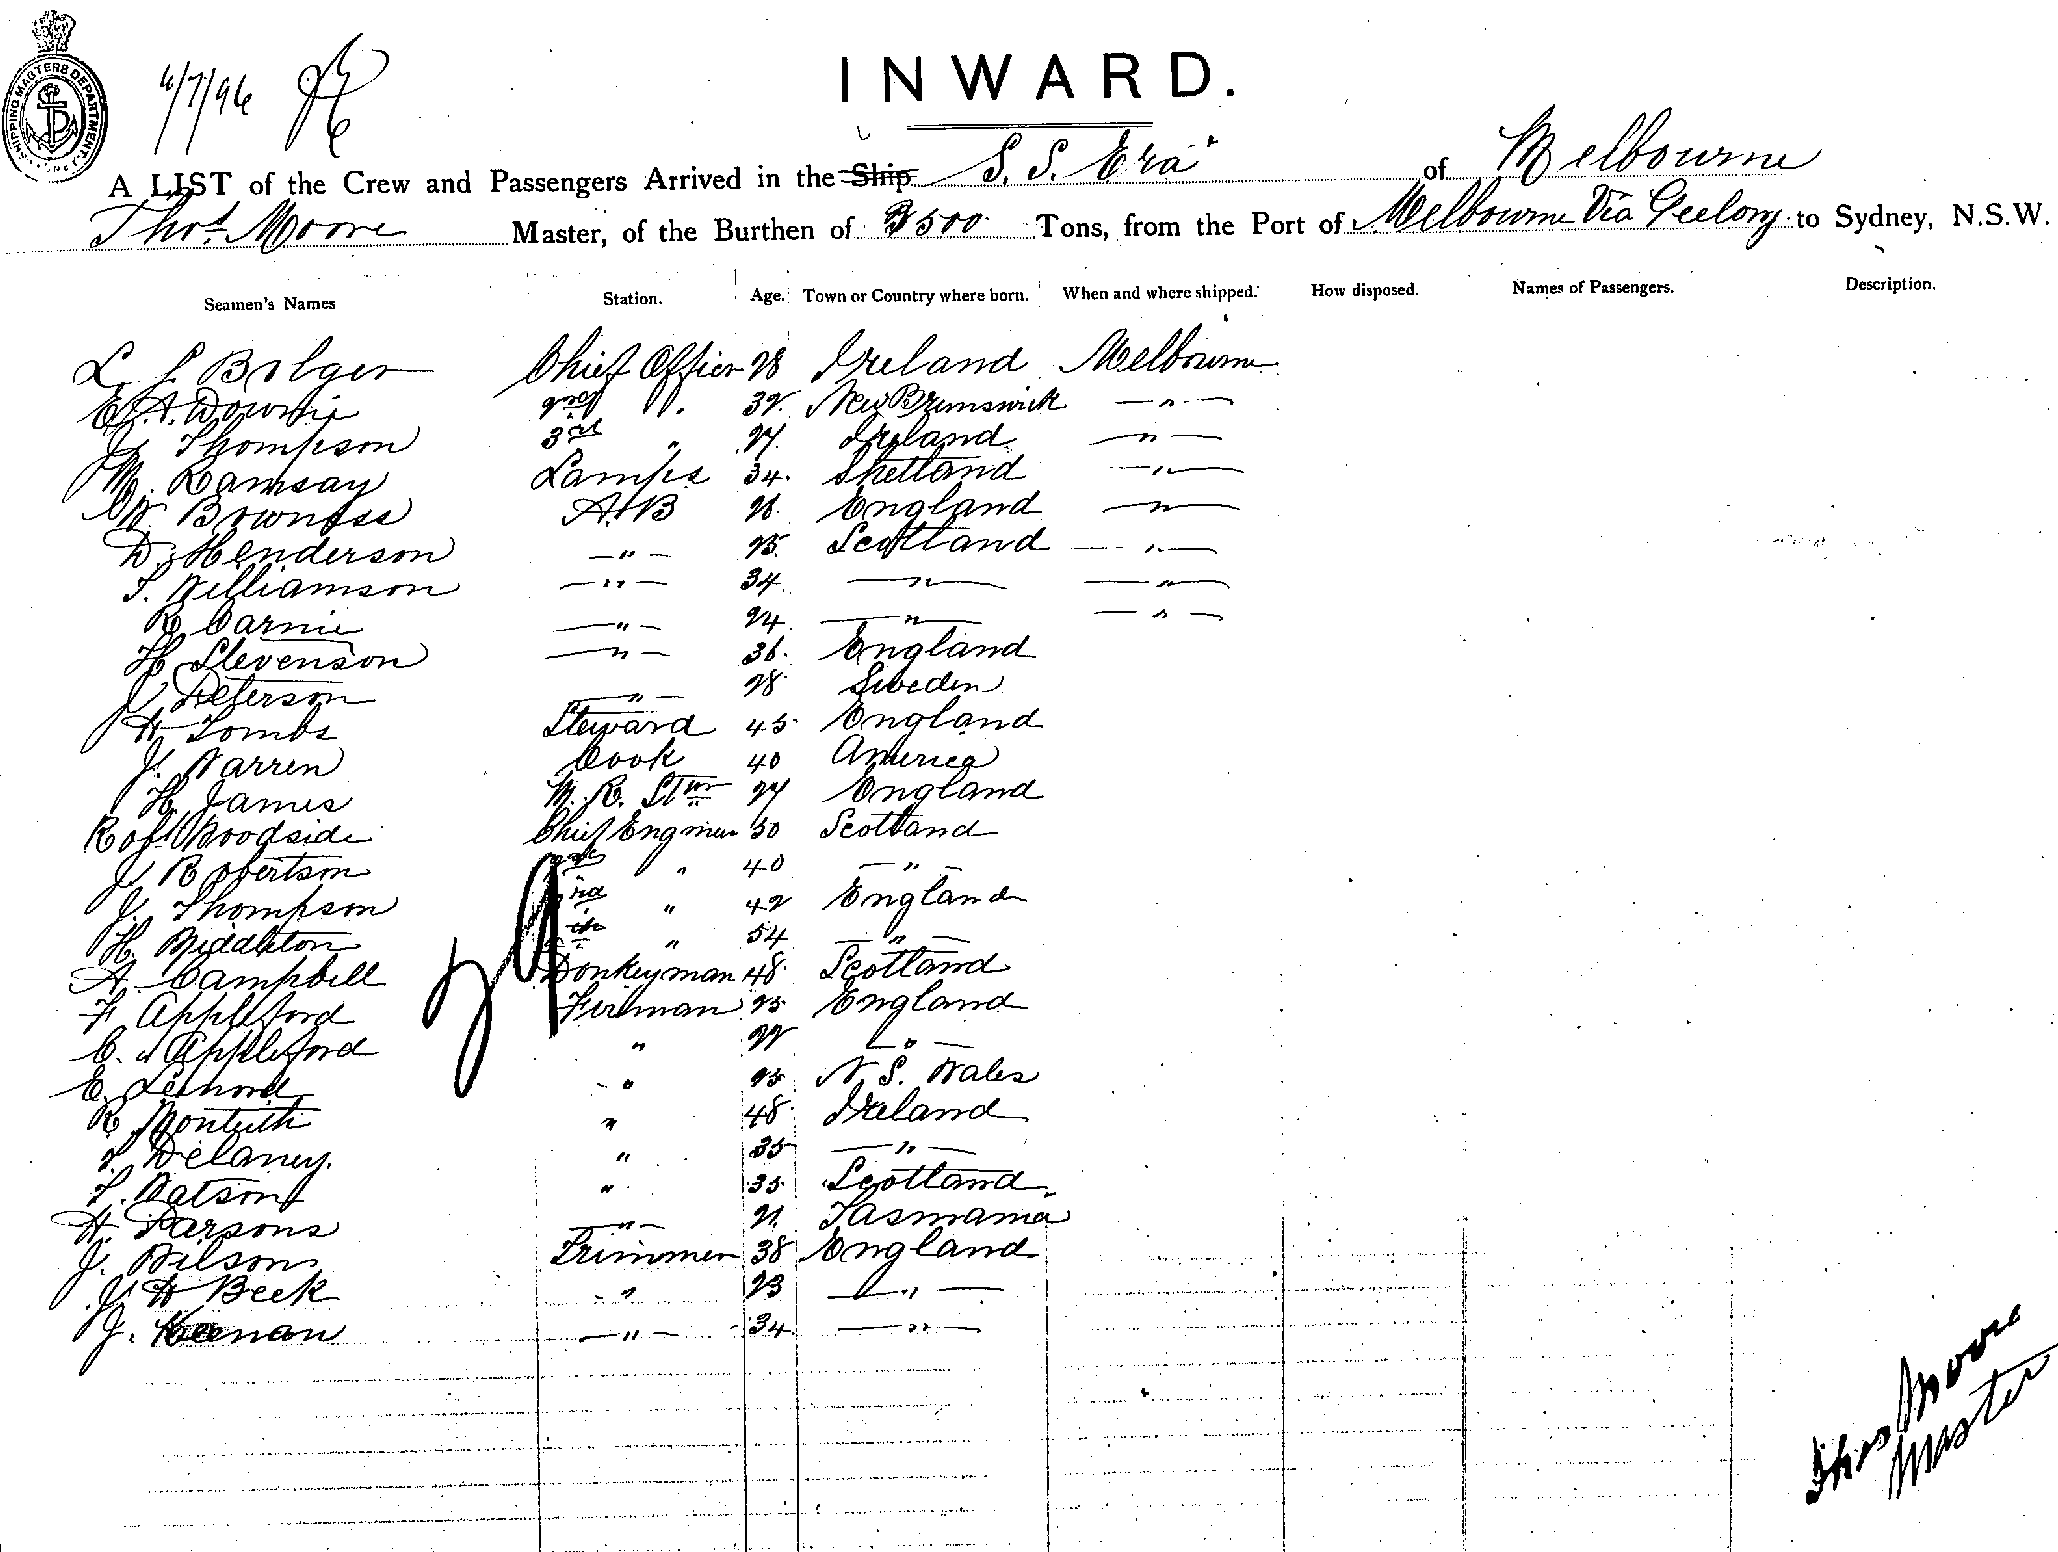 SHIPPING MASTERS DEPARTMENT
6/7/96
INWARD.
A LIST of the Crew and Passengers Arrived in the Ship S. S. Era of Melbourne
Thos. Moore Master, of the Burthen of 500 Tons, from the Port of Melbourne Via Geelong to Sydney, N.S.W.
Seamen's Names Station. Age. Town or Country where born. When and where shipped. How disposed. Names of Passengers. Description.
L. S Bolger Chief Officer 28 Ireland Melbourne
E. A. Downie 2nd " 32. New Brunswick — " —
J. Thompson 3rd " 27. Ireland — " —
M. Ramsay Lamps 34. Shetland — " —
W. Bowness A.B 21. England — " —
D. Henderson — " — 25. Scotland — " —
S. Williamson — " — 34 — " — — " —
R Carnie — " — 24. — " — — " —
H Stevenson — " — 36. England
J Peterson — " — 28 Sweden
H Tombs Steward 45. England
J. Warren Cook 40 America
H. James M. R. Stwd 27 England
Robt Woodside Chief Engineer 50 Scotland
J Robertson 2nd " 40 — " —
J. Thompson 3rd " 42 England
H. Middleton 4th " 54 — " —
A. Campbell Donkeyman 48. Scotland
F Appleford Fireman 25 England
C. Appleford " 22 — " —
E. Lenord " 25 N. S. Wales
R Monteith " 48 Ireland
T Delaney. " 35 — " —
T. Watson " 35 Scotland
H. Parsons — " — 21. Tasmania
J. Wilson Trimmer 38 England
J H Beek " 23 — " —
J. Keenan — " — 34 — " —
Thos Moore
Master